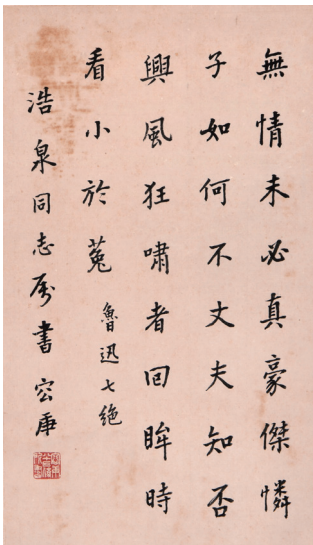 無情未必真豪傑憐
子如何不丈夫知否
興風狂嘯者回眸時
看小於菟
魯迅七絕
浩泉同志屬書宏康